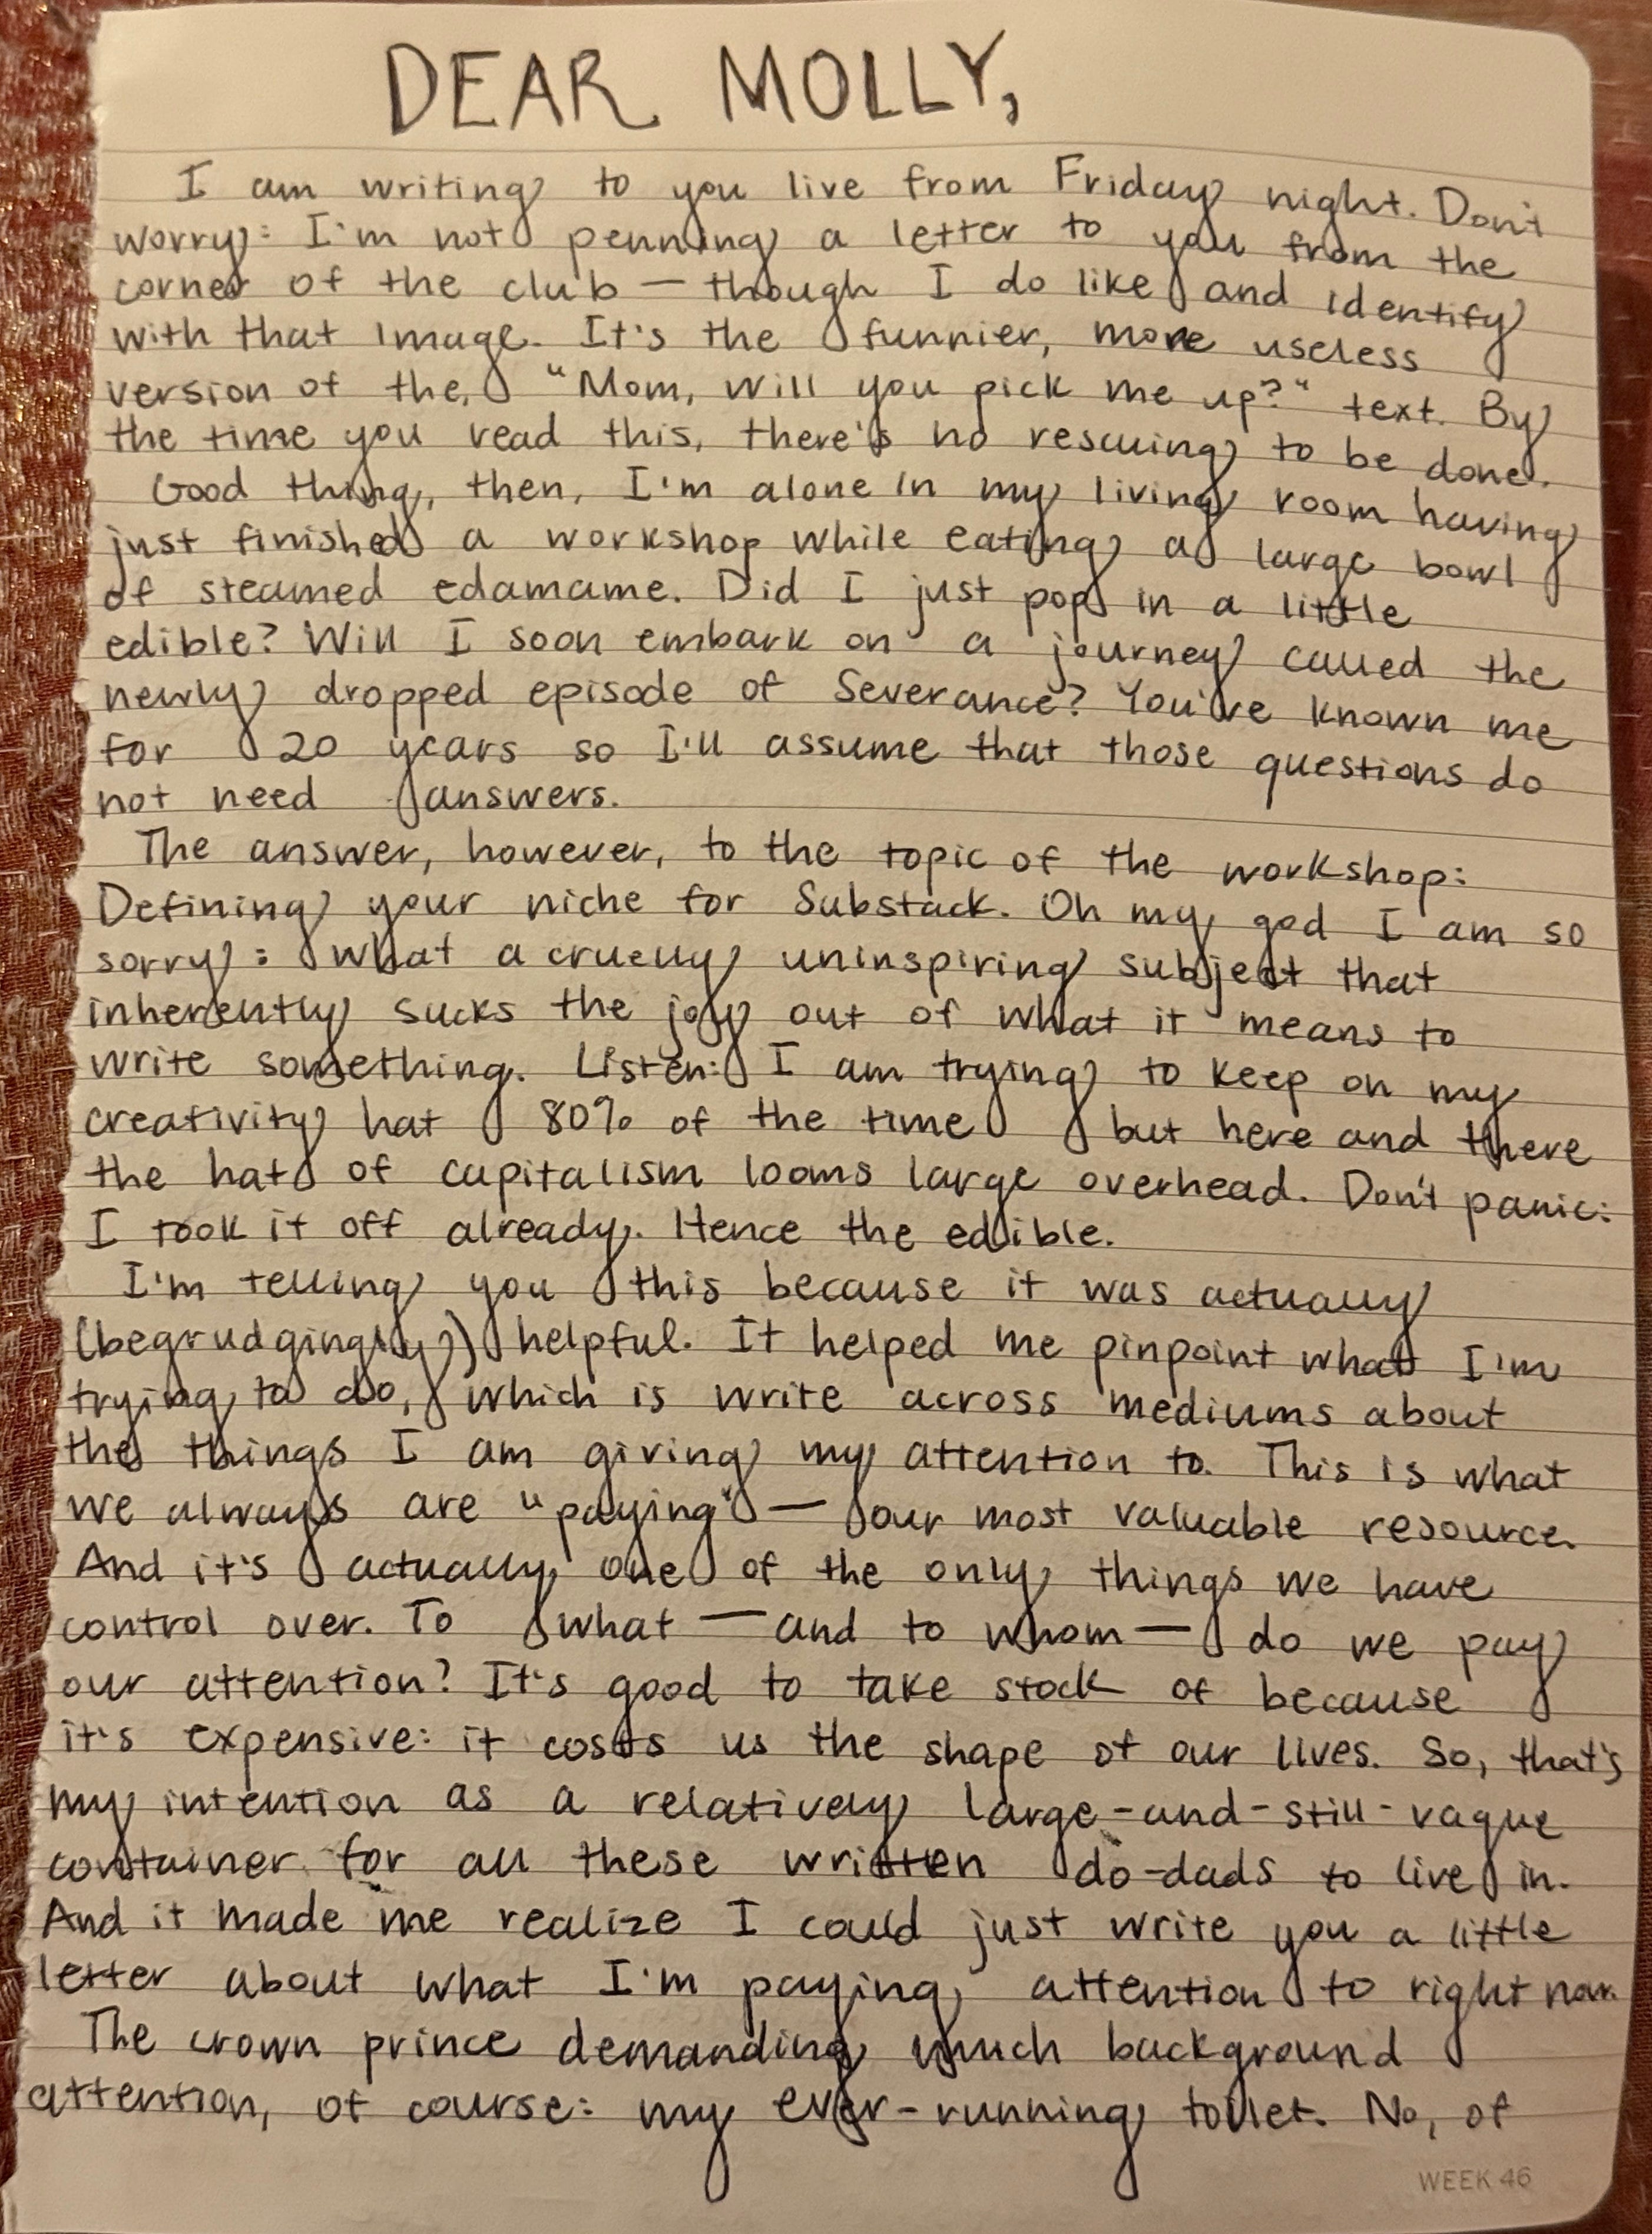 DEAR MOLLY,
I am writing to you live from Friday night. Don't
worry: I'm not penning a letter to you from the
corner of the club — though I do like and identify
with that image. It's the funnier, more useless
version of the, "Mom, will you pick me up?" text. By
the time you read this, there's no rescuing to be done.
Good thing, then, I'm alone in my living room having
just finished a workshop while eating a large bowl
of steamed edamame. Did I just pop in a little
edible? Will I soon embark on a journey called the
newly dropped episode of Severance? You've known me
for 20 years so I'll assume that those questions do
not need answers.
The answer, however, to the topic of the workshop:
Defining your niche for Substack. Oh my god I am so
sorry: what a cruelly uninspiring subject that
inherently sucks the joy out of what it means to
write something. Listen: I am trying to keep on my
creativity hat 80% of the time but here and there
the hat of capitalism looms large overhead. Don't panic:
I took it off already. Hence the edible.
I'm telling you this because it was actually
(begrudgingly) helpful. It helped me pinpoint what I'm
trying to do, which is write across mediums about
the things I am giving my attention to. This is what
we always are "paying" — our most valuable resource.
And it's actually one of the only things we have
control over. To what — and to whom — do we pay
our attention? It's good to take stock of because
it's expensive: it costs us the shape of our lives. So, that's
my intention as a relatively large-and-still-vague
container for all these written do-dads to live in.
And it made me realize I could just write you a little
letter about what I'm paying attention to right now.
The crown prince demanding much background
attention, of course: my ever-running toilet. No, of
WEEK 46